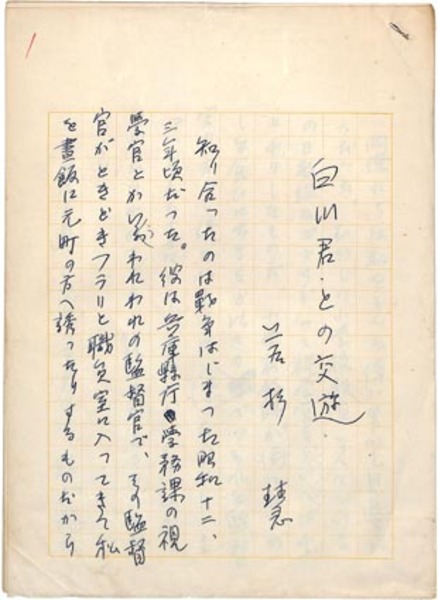 白川君との交遊
若杉 慧
知り合ったのは戦争はじまった昭和十二、
三年頃だった。彼は兵庫縣庁学務課の視
學官とかいう、われわれの監督官で、その監督
官がときどきフラリと職員室に入ってきて私
を晝飯に元町の方へ誘ったりするものだから